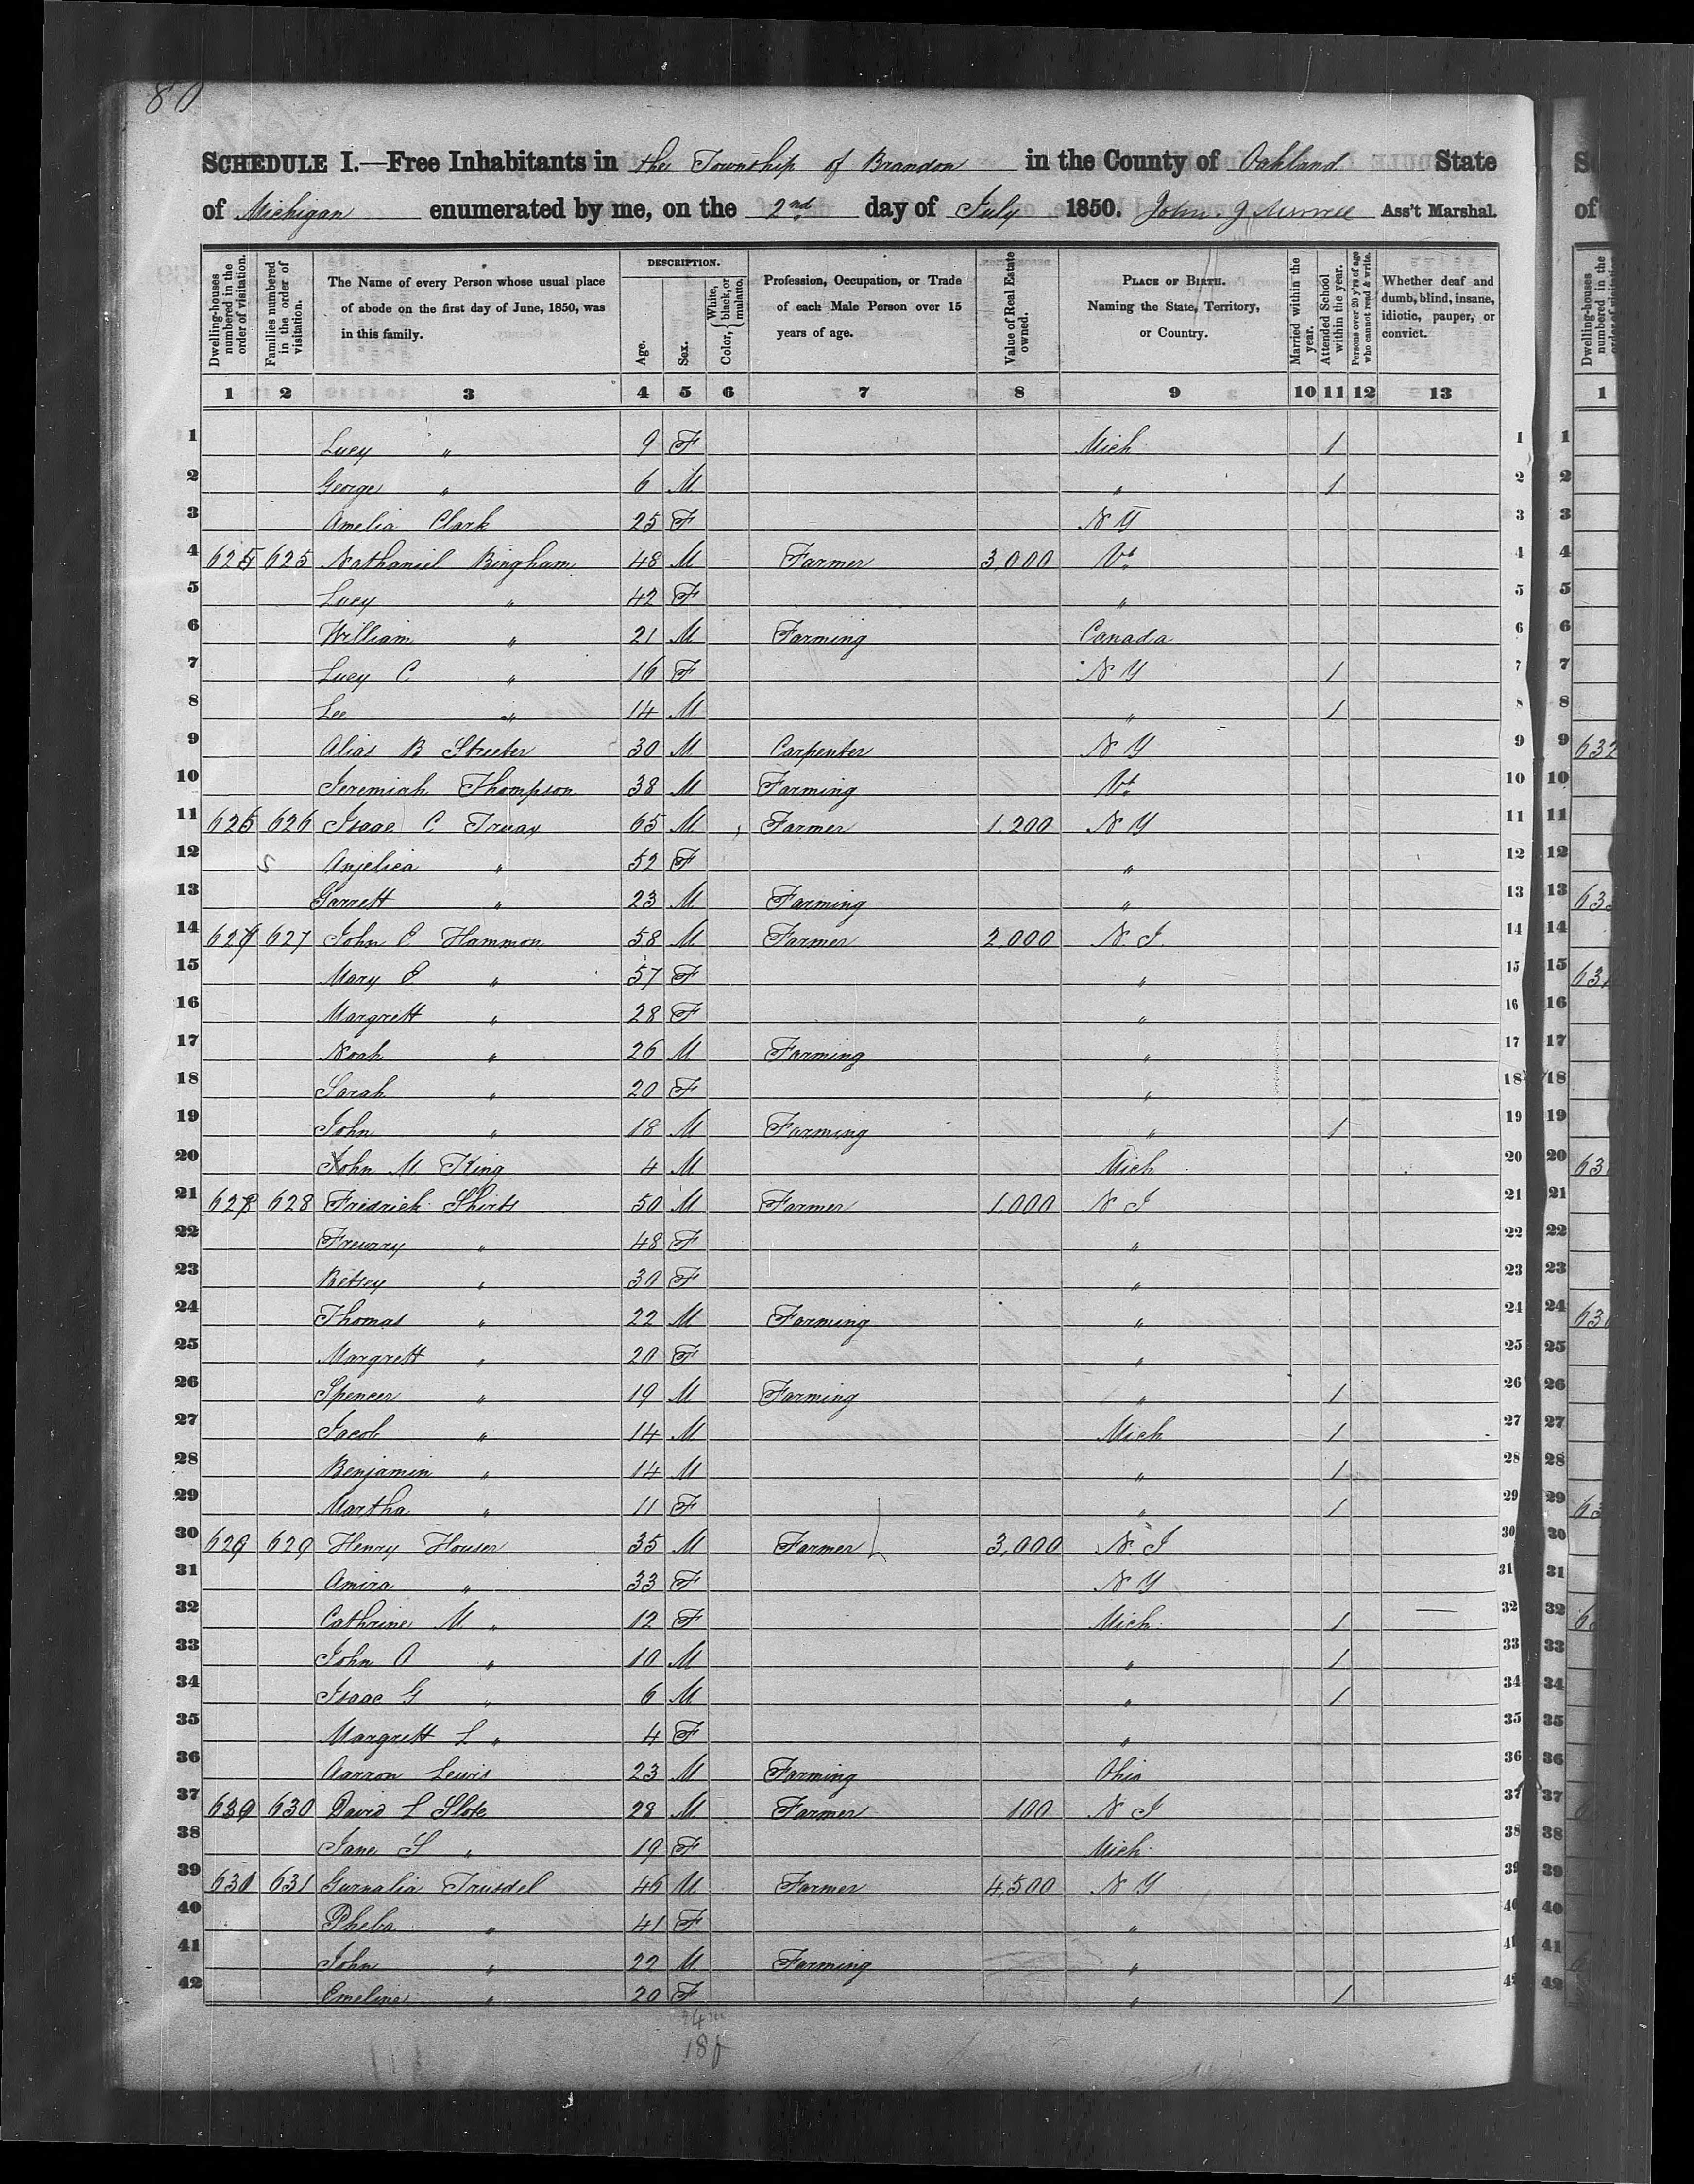 80
SCHEDULE I.—Free Inhabitants in the Township of Brandon in the County of Oakland State
of Michigan enumerated by me, on the 2nd day of July 1850. John J Ass't Marshal.
Dwelling-houses numbered in the order of visitation.
Families numbered in the order of visitation.
The Name of every Person whose usual place of abode on the first day of June, 1850, was in this family.
DESCRIPTION.
Age.
Sex.
Color, { White, black, or mulatto.
Profession, Occupation, or Trade of each Male Person over 15 years of age.
Value of Real Estate owned.
PLACE OF BIRTH. Naming the State, Territory, or Country.
Married within the year.
Attended School within the year.
Persons over 20 y'rs of age who cannot read & write.
Whether deaf and dumb, blind, insane, idiotic, pauper, or convict.
1 2 3 4 5 6 7 8 9 10 11 12 13
1 Lucy " 9 F Mich 1 1
2 George " 6 M " 1 2
3 Amelia Clark 25 F N Y 3
4 625 625 Nathaniel Bingham 48 M Farmer 3,000 Vt 4
5 Lucy " 42 F " 5
6 William " 21 M Farming Canada 6
7 Lucy C " 16 F N Y 1 7
8 Lee " 14 M " 1 8
9 Alias B Streeter 30 M Carpenter N Y 9
10 Jeremiah Thompson 38 M Farming Vt 10
11 626 626 Isaac C Truax 65 M Farmer 1,200 N Y 11
12 Anjelica " 52 F " 12
13 Garrett " 23 M Farming " 13
14 627 627 John C Hammon 58 M Farmer 2,000 N. J. 14
15 Mary E " 57 F " 15
16 Margrett " 28 F " 16
17 Noah " 26 M Farming " 17
18 Sarah " 20 F " 18
19 John " 18 M Farming " 1 19
20 John M King 4 M Mich 20
21 628 628 Fredrick Shirts 50 M Farmer 1,000 N J 21
22 " 48 F " 22
23 Betsey " 30 F " 23
24 Thomas " 22 M Farming " 24
25 Margrett " 20 F " 25
26 Spencer " 19 M Farming " 1 26
27 Jacob " 14 M Mich 1 27
28 Benjamin " 14 M " 1 28
29 Martha " 11 F " 1 29
30 629 629 Henry Houser 35 M Farmer 3,000 N. J 30
31 Amira " 33 F N Y 31
32 Cathrine M " 12 F Mich 1 32
33 John O " 10 M " 1 33
34 Isaac G " 6 M " 1 34
35 Margrett L " 4 F " 35
36 Aarron Lewis 23 M Farming Ohio 36
37 630 630 David L Slote 28 M Farmer 100 N J 37
38 Jane S " 19 F Mich 38
39 631 631 Gurnalia Trusdel 46 M Farmer 4,500 N Y 39
40 Pheba " 41 F " 40
41 John " 22 M Farming " 41
42 Emeline " 20 F " 1 42
24m
18f